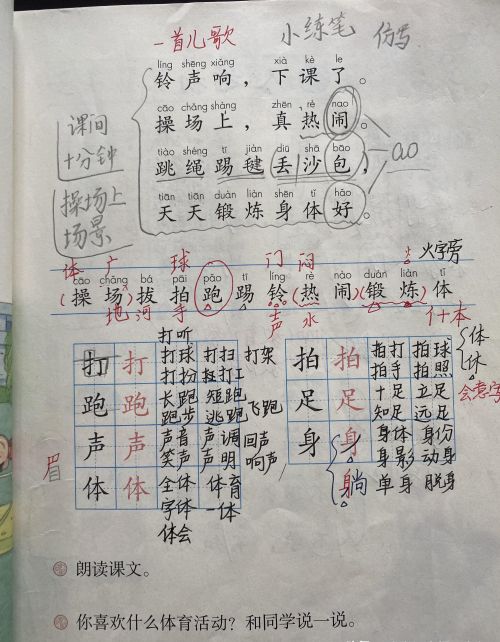 一首儿歌 小练笔 仿写
líng shēng xiǎng xià kè le
铃声响，下课了。
cāo chǎng shàng zhēn rè nao
操场上，真热闹。
课间
十分钟
tiào shéng tī jiàn diū shā bāo
跳绳踢毽丢沙包，
ao
操场上
场景
tiān tiān duàn liàn shēn tǐ hǎo
天天锻炼身体好。
体 广 球 门 闷 火字旁
cāo chǎng bá pāi pǎo tī líng rè nào duàn liàn tǐ
(操场)拔拍跑踢铃(热闹)(锻炼)体
地 河 手 声 水 亻+本
打听
打 打 打球 打扫 打架
打扮 打工
跑 跑 长跑 短跑
跑步 逃跑 飞跑
声 声 声音 声调 回声
笑声 声明 响声
眉
体 体 全体 体育
字体 一体
体会
拍 拍 拍打 拍球
拍手 拍照
足 足 十足 立足
知足 远足
身 身 身体 身份
身影 动身
躺 单身 脱身
体
休
会意字
朗读课文。
你喜欢什么体育活动？和同学说一说。